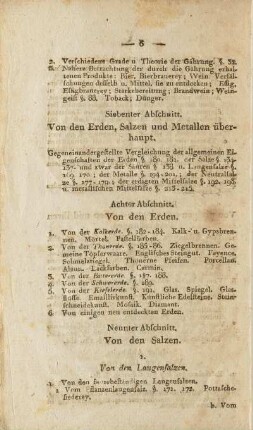 — 8 —
2. Verschiedene Grade u Theorie der Gährung. §. 32.
Nähere Betrachtung der durch die Gährung erhal-
tenen Produkte: Bier, Bierbrauerey; Wein Verfäl-
schungen desselb u. Mittel, sie zu entdecken; Essig,
Essigbrauerey; Starkebereitung; Brandwein; Wein-
geist §. 88. Toback; Dünger.
Siebenter Abschnitt.
Von den Erden, Salzen und Metallen über-
haupt.
Gegeneinandergestellte Vergleichung der allgemeinen Ei-
genschaften der Erden §. 180. 181. der Salze
und zwar der Säuren u. Laugensalze §.
der Metalle §. der Neutralsal-
ze §. 177. der erdigten Mittelsalze §. 192.
u. metallischen Mittelsalze §.
Achter Abschnitt.
Von den Erden.
1. Von der Kalkerde. §. 182-184. Kalk- u. Gypsbren-
nen. Mörtel. Pastellfarben.
2. Von der Thonerde. §. 185-86. Ziegelbrennen. Ge-
meine Töpferwaare. Englisches Steingut. Fayence.
Schmelztiegel. Thönerne Pfeifen. Porcellan.
Alaun. Lackfarben. Carmin.
3. Von der Bittererde. §. 188.
4. Von der Schwererde. §.
5. Von der Kieselerde. §. Glas. Spiegel. Glas-
flüsse. Emaillirkunst. Künstliche Edelsteine. Stein-
schneidekunst. Mosaik. Diamant.
6. Von einigen neu entdeckten Erden.
Neunter Abschnitt.
Von den Salzen.
1.
Von den Laugensalzen.
a. Von den feuerbeständigen Laugensalzen.
Vom Pflanzenlaugensalz. §. 171. 172. Pottasche-
siederey.
b. Vom